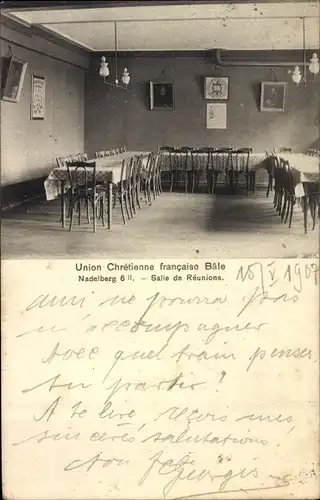 Union Chrétienne française Bâle
Nadelberg 6 II. - Salle de Réunions.
15/V 1907
ne pourra pas
m'accompagner
Avec quel train penses-
tu partir?
A te lire, reçois mes
sincères salutations!
Ton
Georges